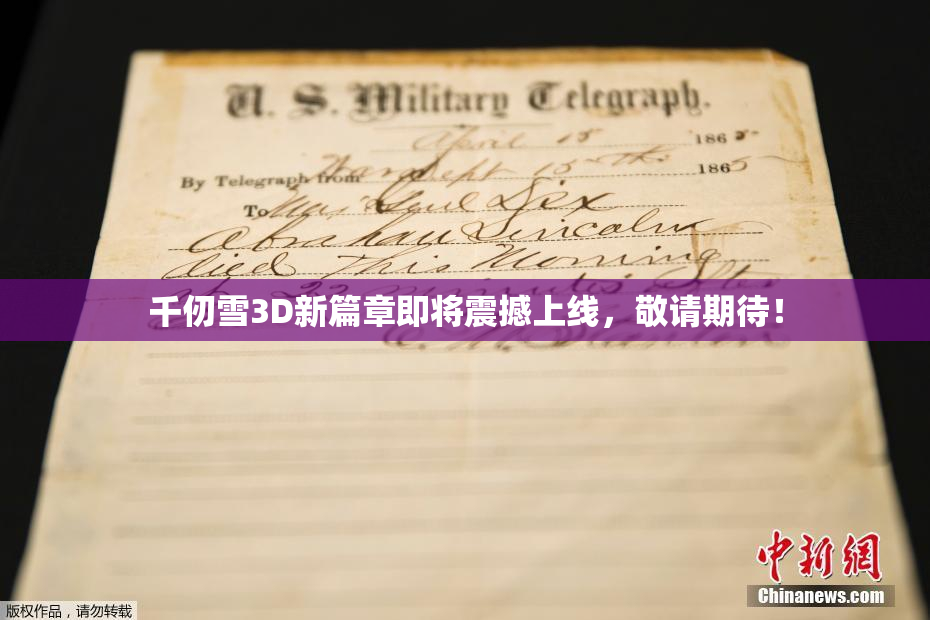 U. S. Military Telegraph.
April 15 1865
By Telegraph from War Dept 15th 1865
To Maj Genl Dix
Abraham Lincoln
died This Morning
at 22 minutes after
千仞雪3D新篇章即将震撼上线，敬请期待！
E. M. Stanton
中新网
Chinanews.com
版权作品，请勿转载